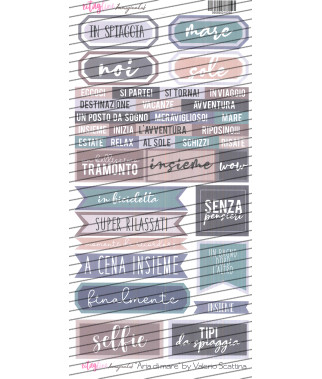 IN SPIAGGIA
mare
noi
sole
ECCOCI SI PARTE! SI TORNA! IN VIAGGIO
DESTINAZIONE VACANZE AVVENTURA
UN POSTO DA SOGNO MERAVIGLIOSO! MARE
INSIEME INIZIA L'AVVENTURA RIPOSINO!!!
ESTATE RELAX AL SOLE SCHIZZI RISATE
TRAMONTO
insieme
wow
in bicicletta
SENZA
pensieri
SUPER RILASSATI
UN BAGNO
DOPO
L'ALTRO
A CENA INSIEME
finalmente
INSIEME
selfie
TIPI
da spiaggia
"Aria di mare" by Valeria Scattina